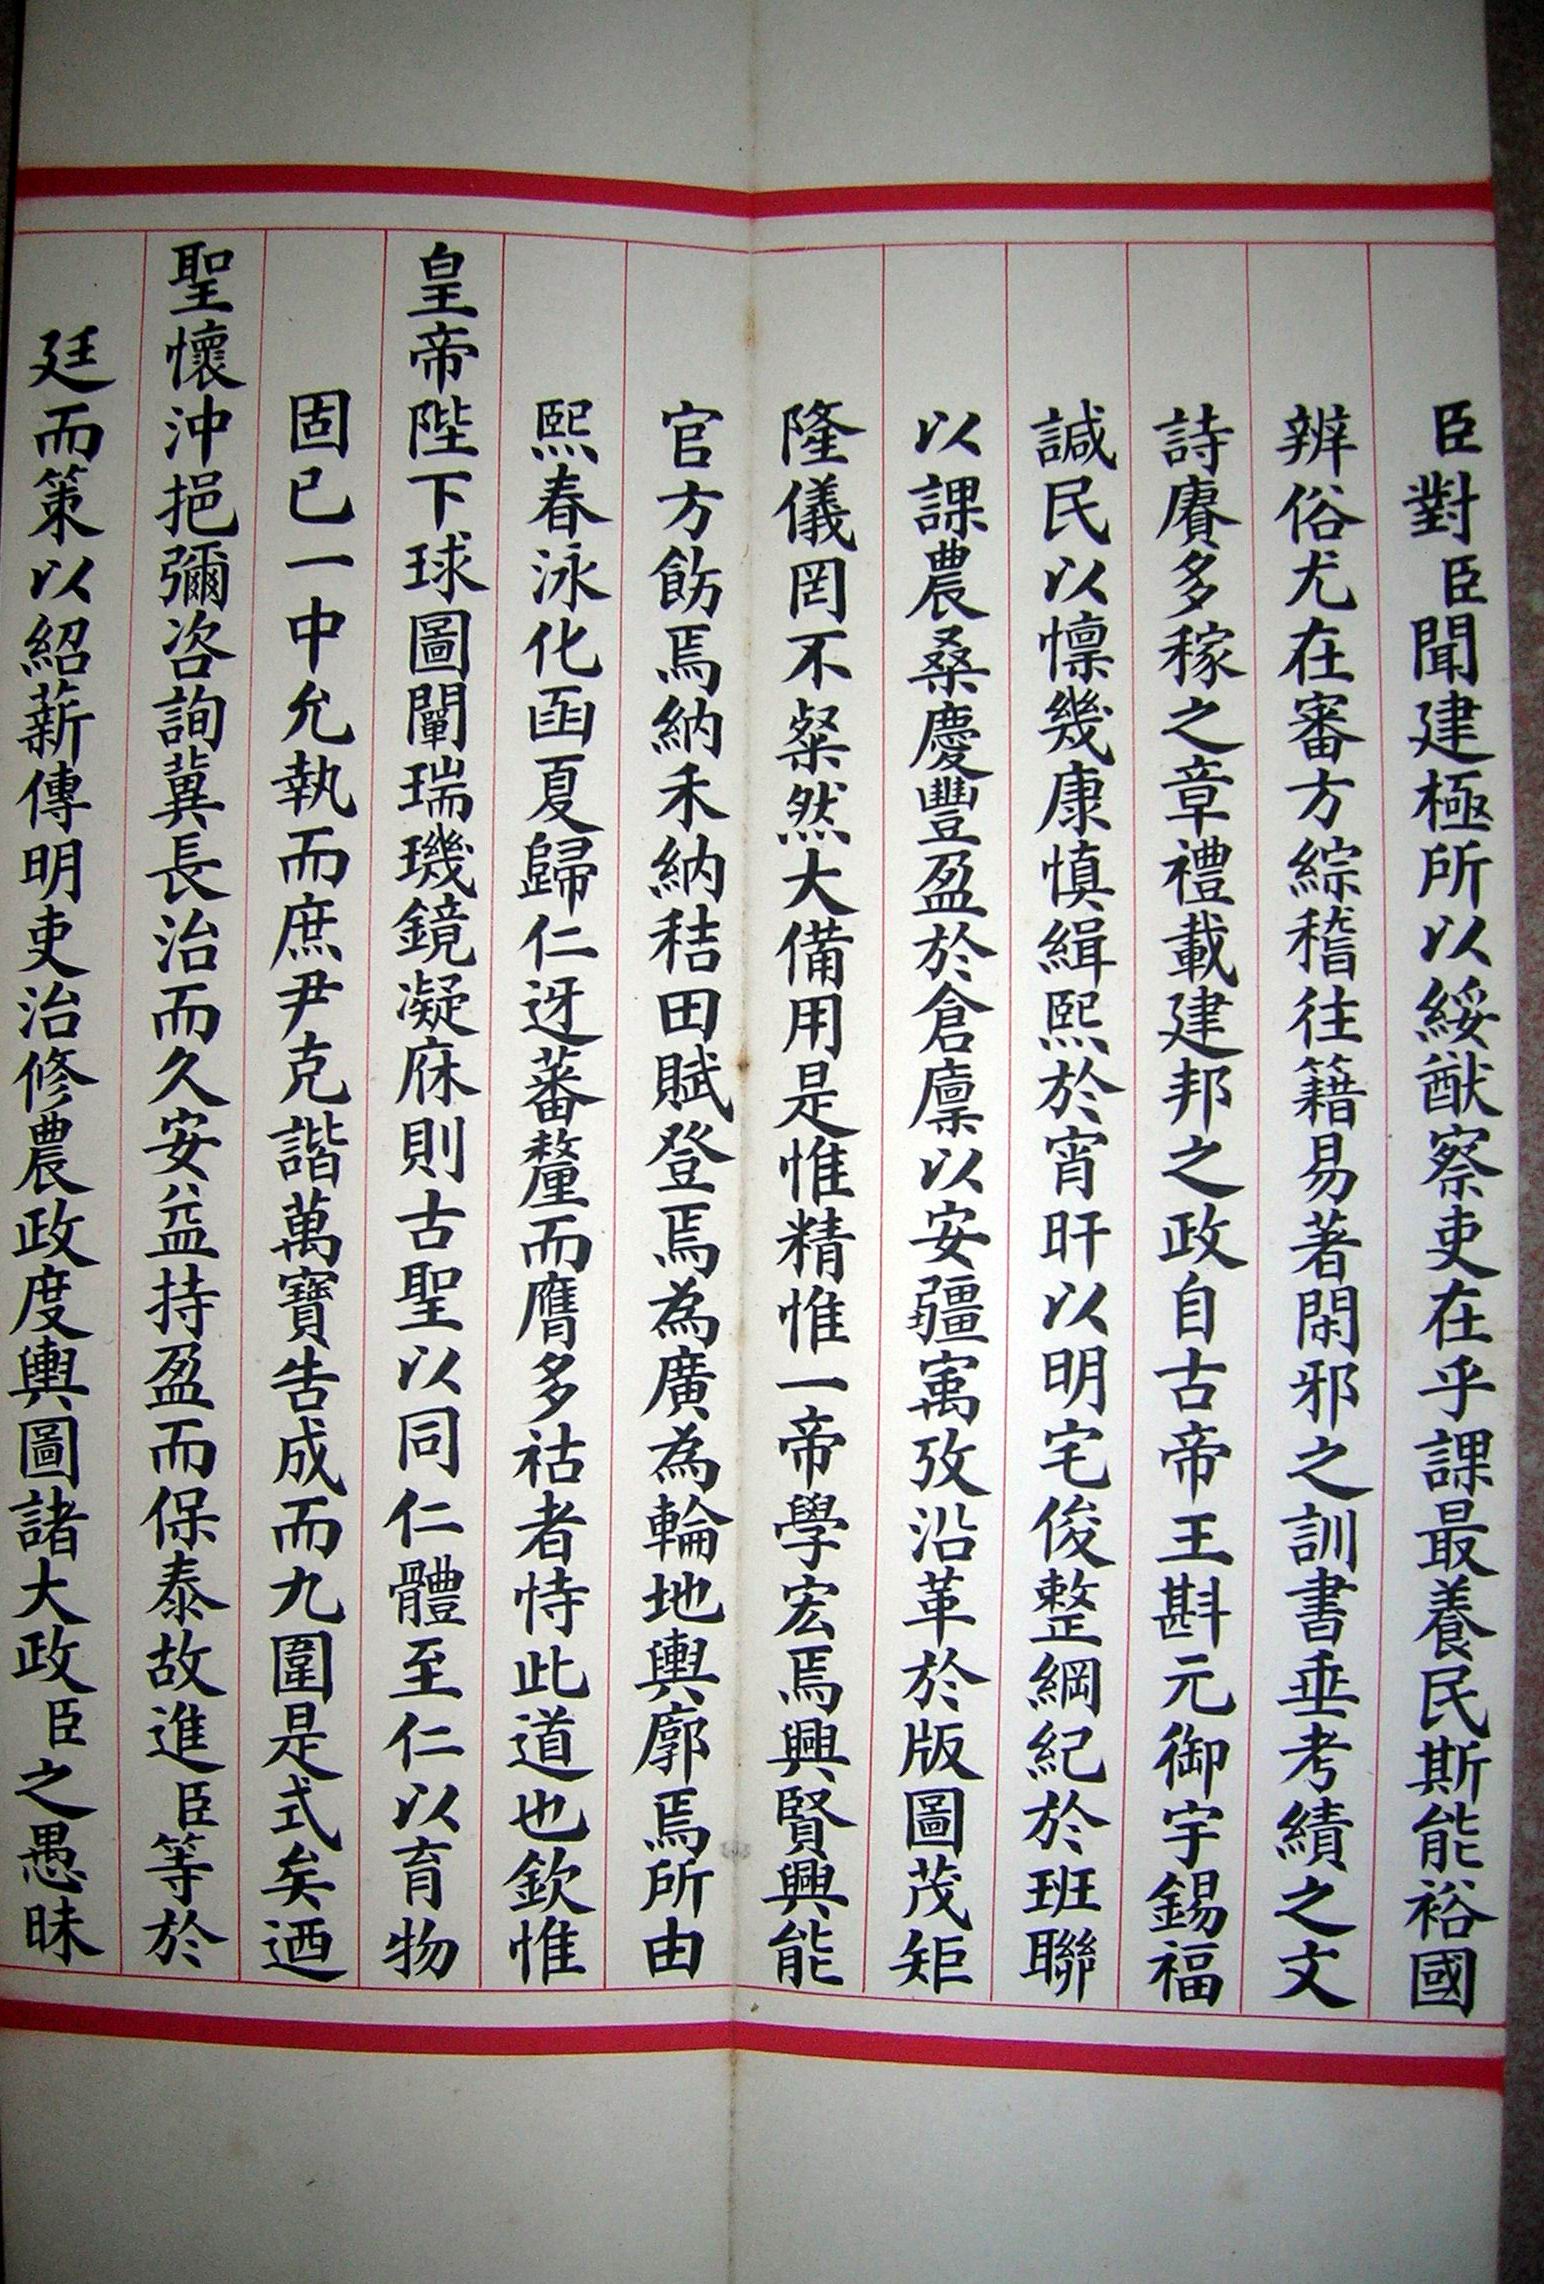 臣對臣聞建極所以綏猷察吏在乎課最養民斯能裕國
辨俗尤在審方綜稽往籍易著閑邪之訓書垂考績之文
詩賡多稼之章禮載建邦之政自古帝王斟元御宇錫福
諴民以懍幾康慎緝熙於宵旰以明宅俊整綱紀於班聯
以課農桑慶豐盈於倉廩以安疆寓攷沿革於版圖茂矩
隆儀罔不粲然大備用是惟精惟一帝學宏焉興賢興能
官方飭焉納禾納秸田賦登焉為廣為輪地輿廓焉所由
熙春泳化函夏歸仁迓蕃釐而膺多祜者恃此道也欽惟
皇帝陛下球圖闡瑞璣鏡凝庥則古聖以同仁體至仁以育物
固已一中允執而庶尹克諧萬寶告成而九圍是式矣迺
聖懷沖挹彌咨詢冀長治而久安益持盈而保泰故進臣等於
廷而策以紹薪傳明吏治修農政度輿圖諸大政臣之愚昧